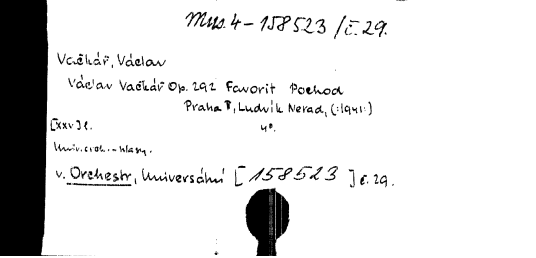 Mus. 4-158523/č. 29.
Vačkář, Václav
Václav Vačkář Op. 292 Favorit Pochod
Praha I, Ludvík Nerad, (:1941:)
[xxv] l. 4°.
Univ. orch. - hlasy.
v. Orchestr, Universální [158523] č. 29.